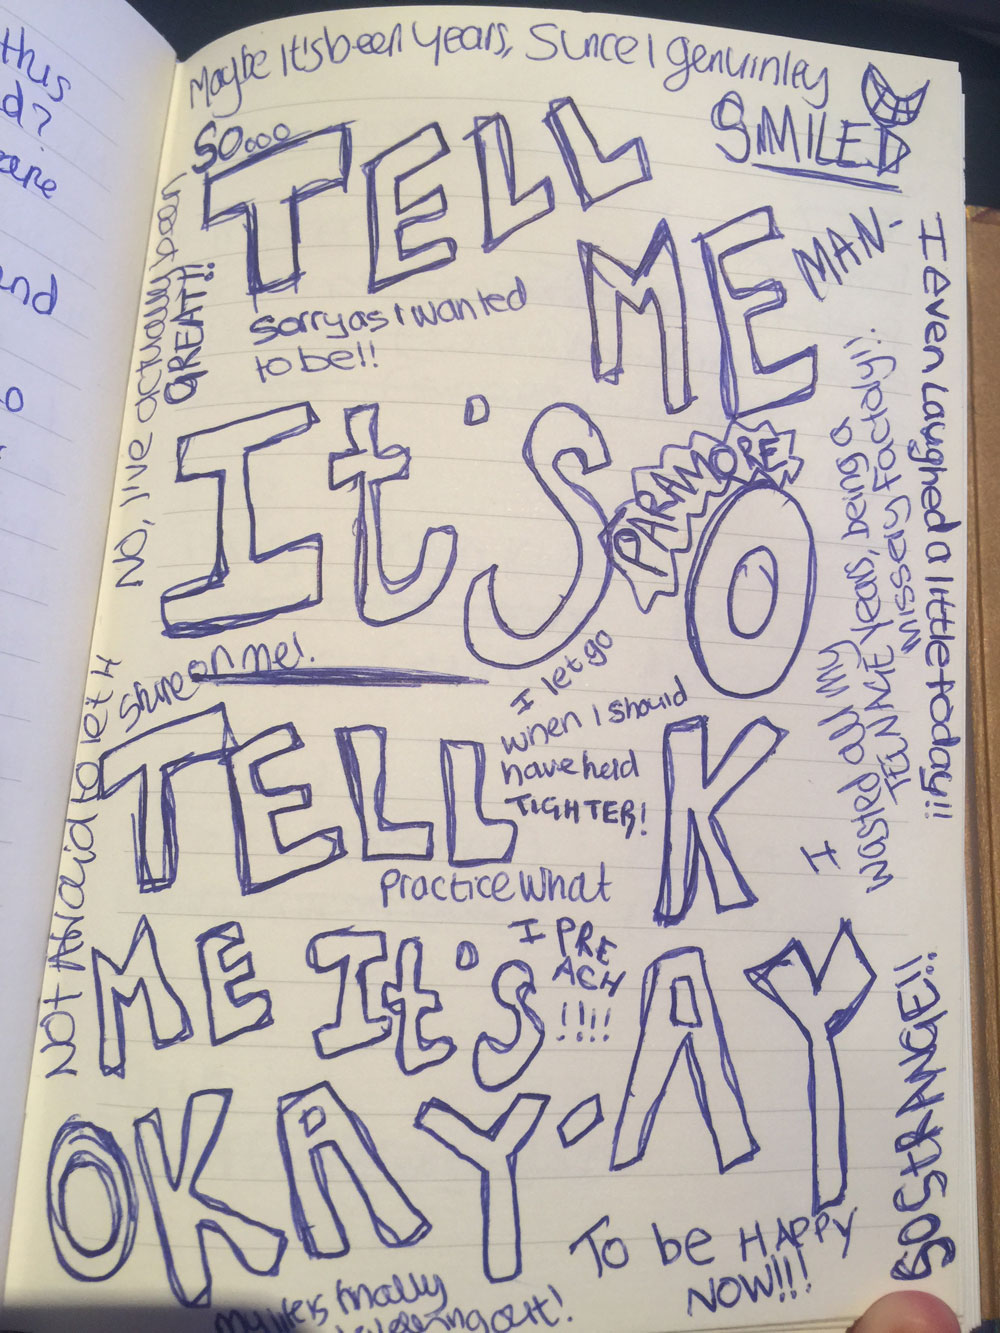 this
d?
and
Maybe It's been years, Since I genuinley
SMILED
SO...
TELL
ME
MAN!
Sorry as I wanted
to be!!
No, I've actually been
GREAT!!
It's
PARAMORE
O
I even laughed a little today!!
I
wasted all my
TEENAGE years, being a
Misery factory!
Shine on me!
I let go
when I should
have held
TIGHTER!
TELL
K
Practice what
I PRE
ACH
!!!!
Not Afraid to let
ME It's
AY
OKAY-
So STRANGE!!
To be HAPPY
NOW!!!
My life is finally
out!